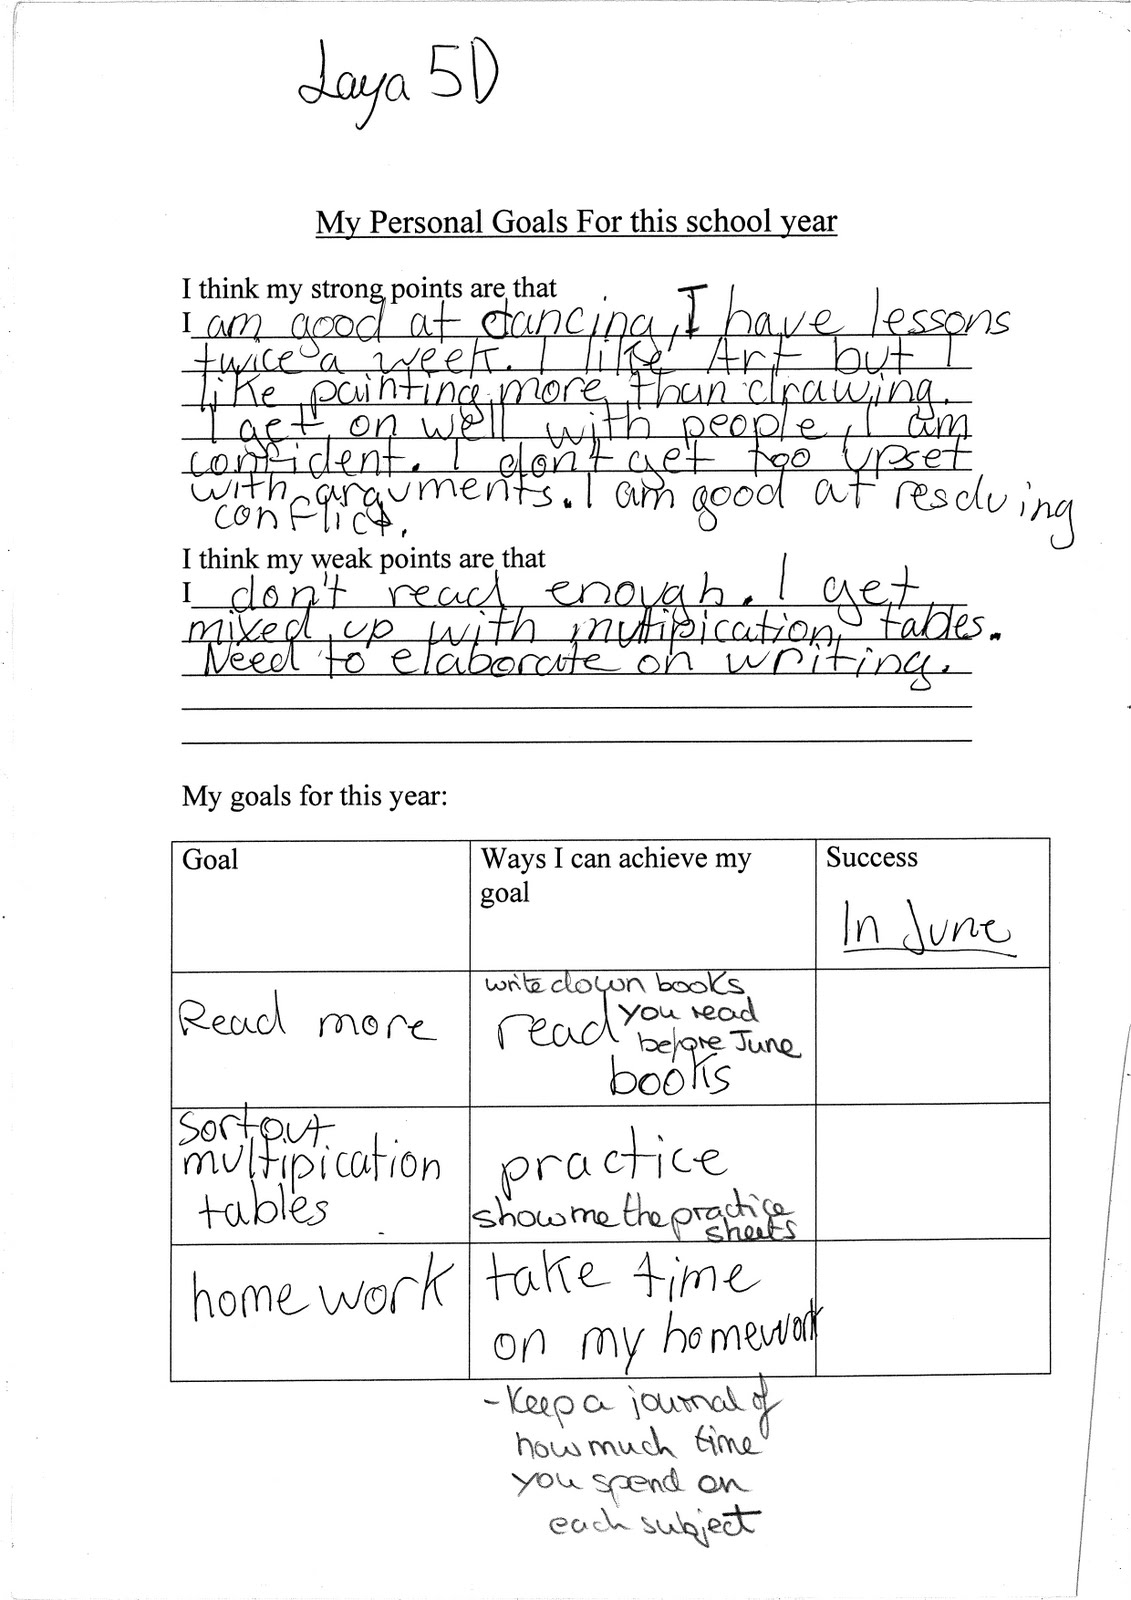 Laya 5D
My Personal Goals For this school year
I think my strong points are that
I am good at dancing, I have lessons
twice a week. I like Art but I
like painting more than drawing.
I get on well with people, I am
confident. I don't get too upset
with arguments. I am good at resolving
conflict.
I think my weak points are that
I don't read enough. I get
mixed up with mutipication tables.
Need to elaborate on writing.
My goals for this year:
Goal
Ways I can achieve my
goal
Success
In June
Read more
write down books
you read
before June
read
books
Sort out
multipication
tables
practice
show me the practice
sheets
home work
take time
on my homework
- Keep a journal of
how much time
you spend on
each subject